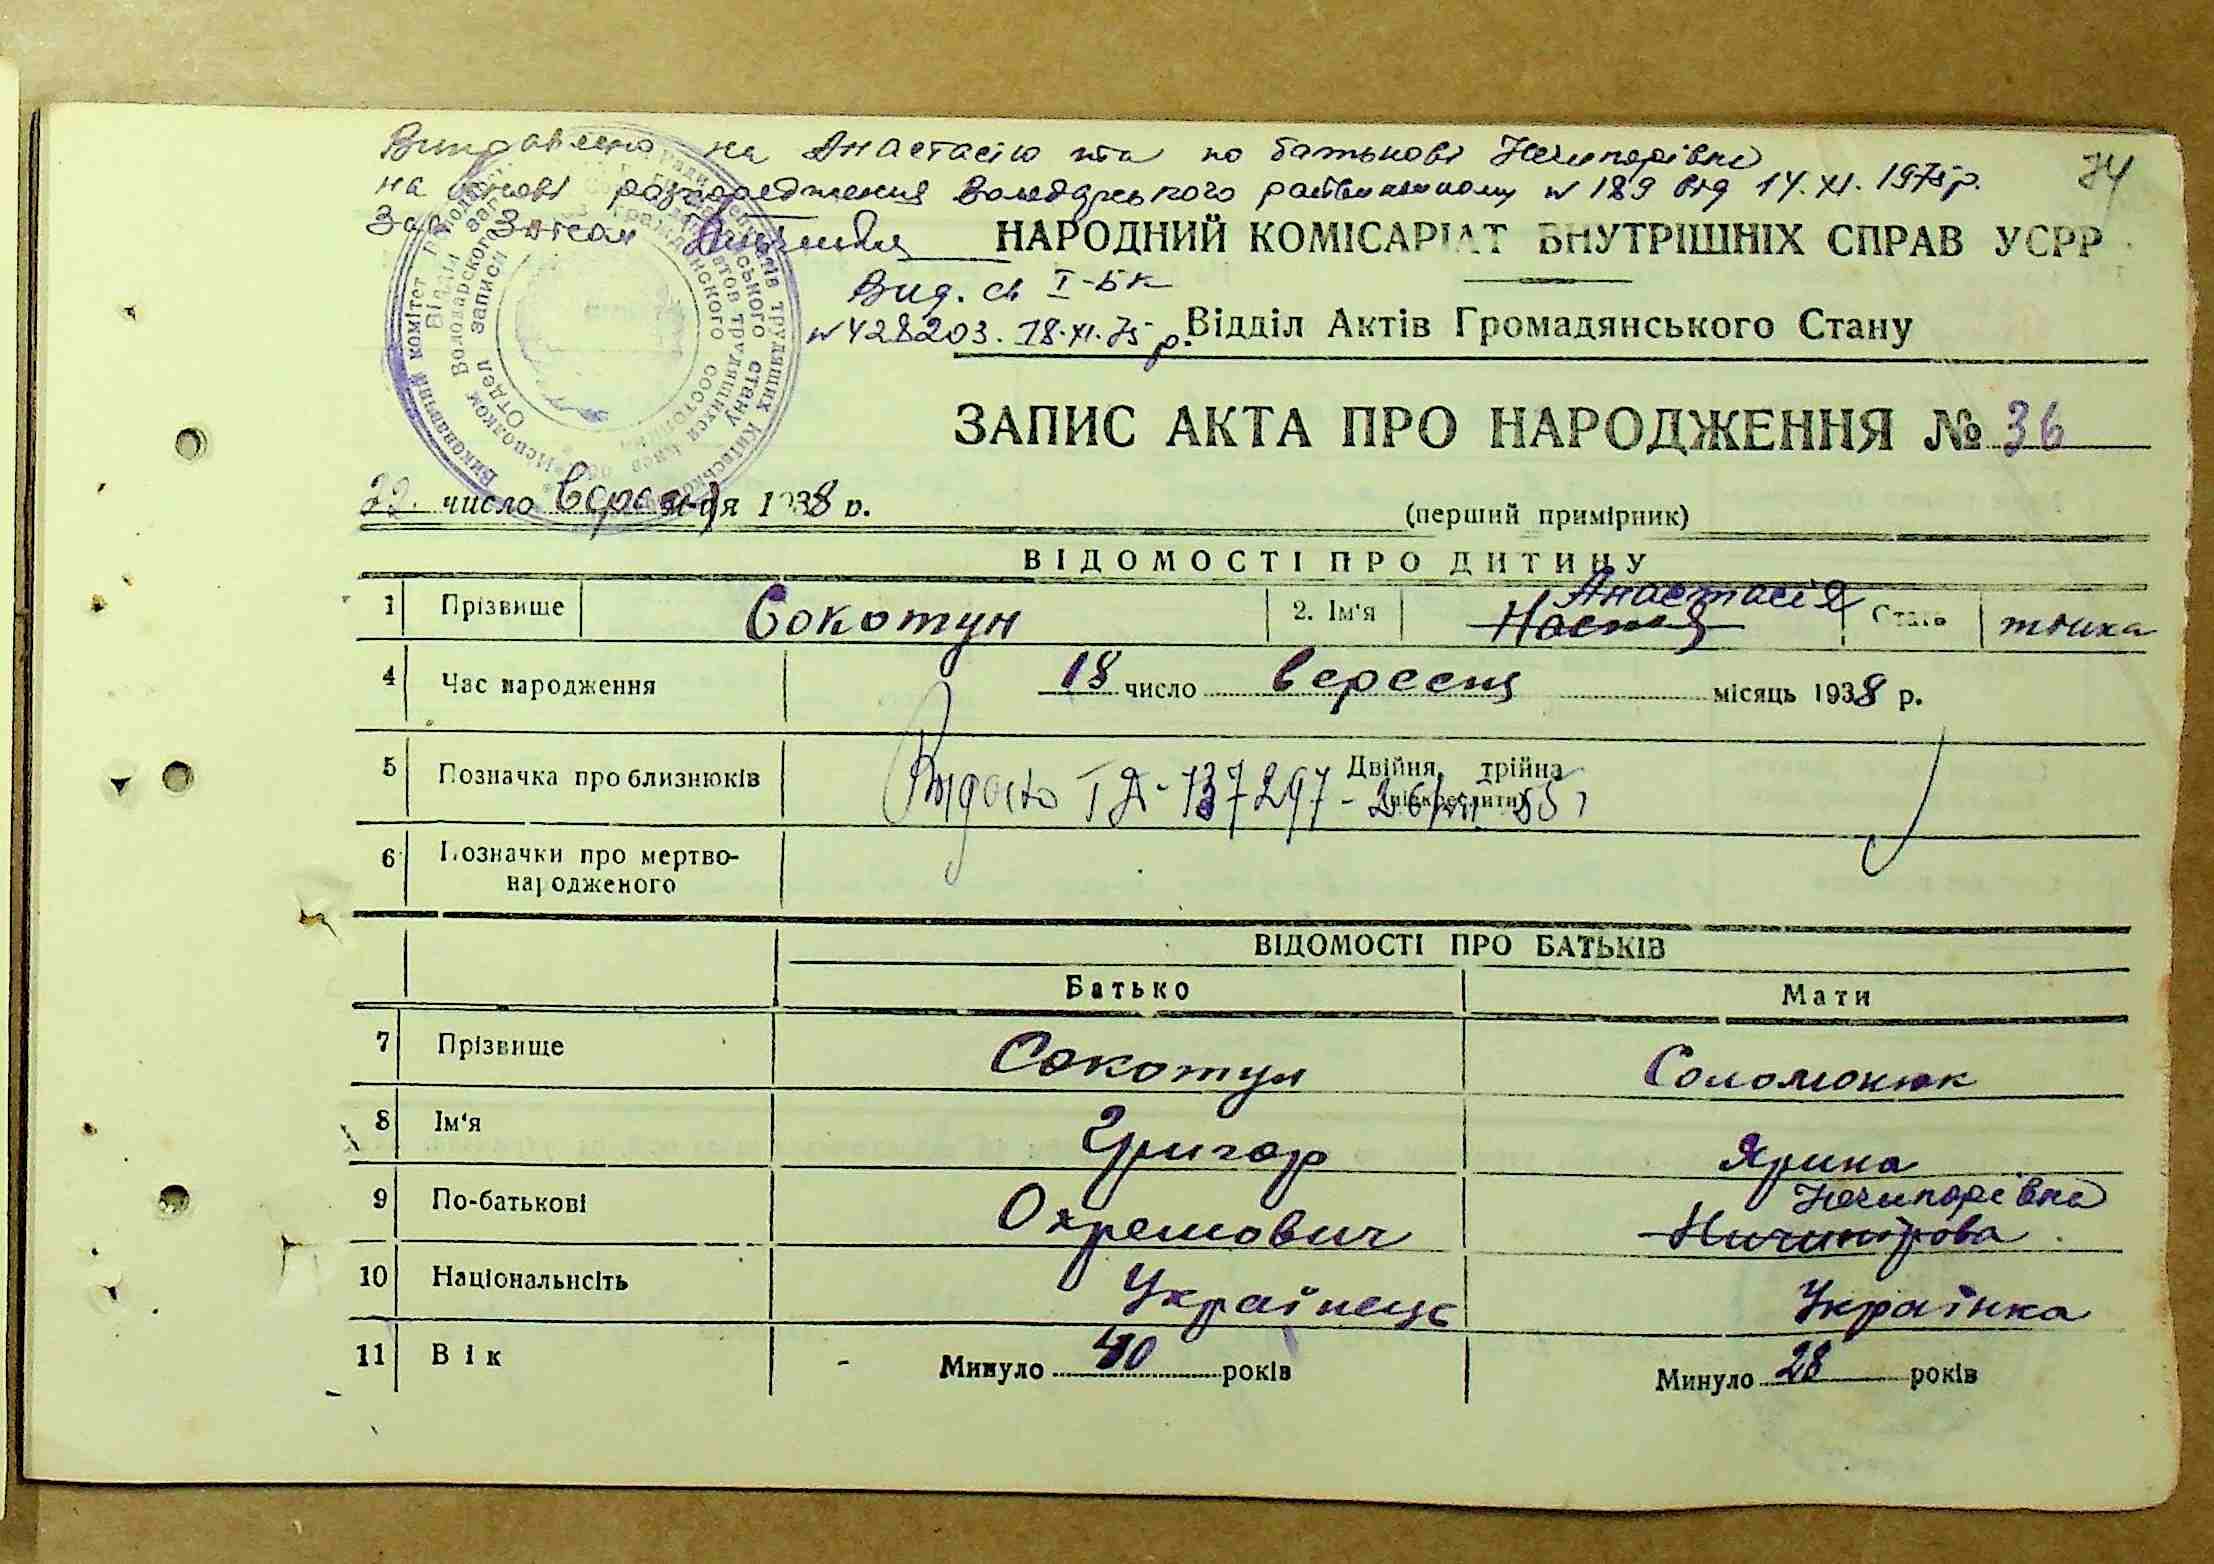 Виправлено на Анастасію та по батькові Нечипорівна
на основі розпорядження Володарського райвиконкому № 189 від 14.XI.1975р.
Зав. Загсом
74
НАРОДНИЙ КОМІСАРІАТ ВНУТРІШНІХ СПРАВ УСРР
Вид. св I-БК
№ 428203. 18.XI.75 р.
Відділ Актів Громадянського Стану
ЗАПИС АКТА ПРО НАРОДЖЕННЯ № 36
22. число вересня 1938 р.
(перший примірник)
ВІДОМОСТІ ПРО ДИТИНУ
1 Прізвище Сокотун 2. Ім'я Настя Анастасія Стать жінка
4 Час народження 18 число вересня місяць 1938 р.
5 Позначка про близнюків Двійня, трійня (підкреслити)
Видано ІД-137297- 26/VII 55 г
6 Позначки про мертво-
народженого
ВІДОМОСТІ ПРО БАТЬКІВ
Батько Мати
7 Прізвище Сокотун Соломонюк
8 Ім'я Григор Ярина
Нечипорівна
9 По-батькові Охремович Ничипірова
10 Національнсіть Українець Українка
11 Вік Минуло 40 років Минуло 28 років